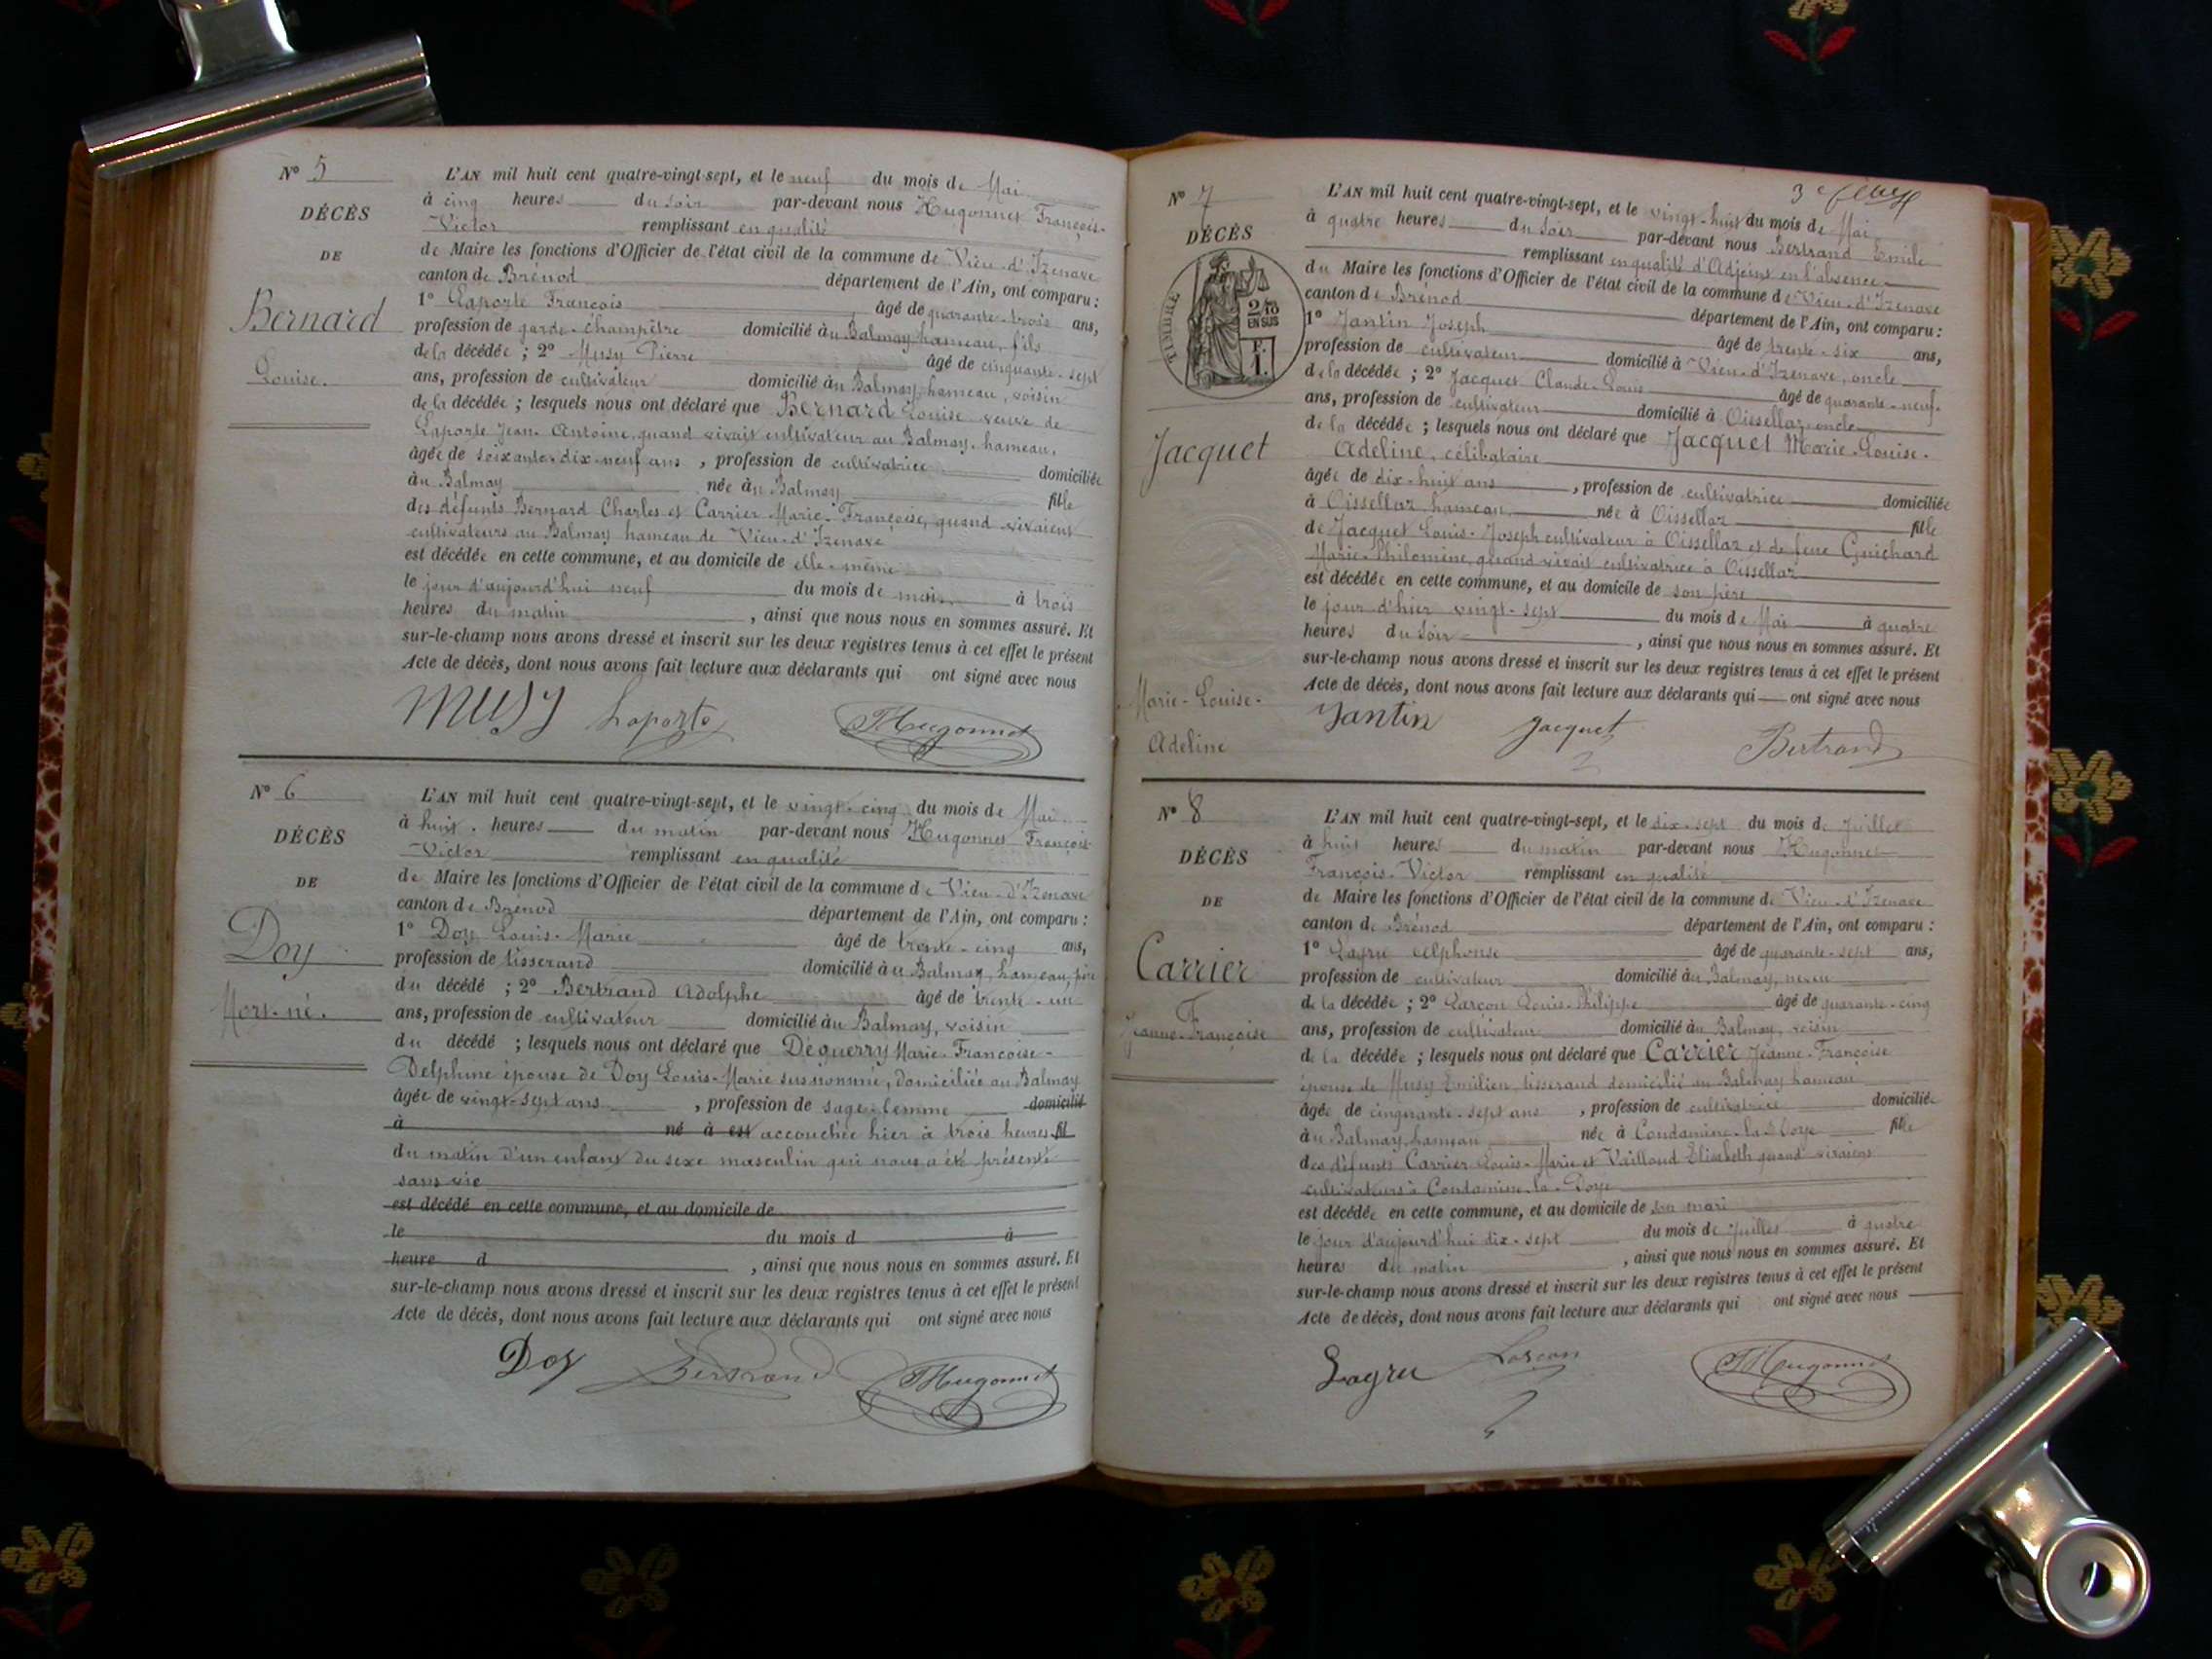 N° 5
DÉCÈS
DE
Bernard
Louise.
L'AN mil huit cent quatre-vingt-sept, et le neuf du mois de Mai
à cinq heures du soir par-devant nous Hugonnet François-
Victor remplissant en qualité
de Maire les fonctions d'Officier de l'état civil de la commune de Vieu-d'Izenave
canton de Brénod département de l'Ain, ont comparu :
1° Laporte François âgé de quarante-trois ans,
profession de garde-champêtre domicilié au Balmay hameau, fils
de la décédée ; 2° Musy Pierre âgé de cinquante-sept
ans, profession de cultivateur domicilié au Balmay, hameau, voisin
de la décédée ; lesquels nous ont déclaré que Bernard Louise veuve de
Laporte Jean-Antoine, quand vivait cultivateur au Balmay, hameau,
âgée de soixante-dix-neuf ans, profession de cultivatrice domiciliée
au Balmay née au Balmay fille
des défunts Bernard Charles et Carrier Marie-Françoise, quand vivaient
cultivateurs au Balmay hameau de Vieu-d'Izenave
est décédée en cette commune, et au domicile de elle-même
le jour d'aujourd'hui neuf du mois de mai à trois
heures du matin, ainsi que nous nous en sommes assuré. Et
sur-le-champ nous avons dressé et inscrit sur les deux registres tenus à cet effet le présent
Acte de décès, dont nous avons fait lecture aux déclarants qui ont signé avec nous
Musy Laporte Hugonnet
N° 6
DÉCÈS
DE
Doy
Mort-né.
L'AN mil huit cent quatre-vingt-sept, et le vingt-cinq du mois de Mai
à huit heures du matin par-devant nous Hugonnet François
Victor remplissant en qualité
de Maire les fonctions d'Officier de l'état civil de la commune de Vieu-d'Izenave
canton de Brénod département de l'Ain, ont comparu :
1° Doy Louis-Marie âgé de trente-cinq ans,
profession de tisserand domicilié au Balmay, hameau, père
du décédé ; 2° Bertrand Adolphe âgé de trente-un
ans, profession de cultivateur domicilié au Balmay, voisin
du décédé ; lesquels nous ont déclaré que Déguerry Marie-Françoise-
Delphine épouse de Doy Louis-Marie susnommé, domiciliée au Balmay
âgée de vingt-sept ans, profession de sage-femme domicilié
à né à est accouchée hier à trois heures fil
du matin d'un enfant du sexe masculin qui nous a été présenté
sans vie
est décédé en cette commune, et au domicile de
le du mois d à
heure d , ainsi que nous nous en sommes assuré. Et
sur-le-champ nous avons dressé et inscrit sur les deux registres tenus à cet effet le présent
Acte de décès, dont nous avons fait lecture aux déclarants qui ont signé avec nous
Doy Bertrand Hugonnet
N° 7
DÉCÈS
TIMBRE
2/10
EN SUS
F.
1.
Jacquet
Marie-Louise-
Adeline
3e
L'AN mil huit cent quatre-vingt-sept, et le vingt-huit du mois de Mai
à quatre heures du soir par-devant nous Bertrand Emile
remplissant en qualité d'Adjoint en l'absence
du Maire les fonctions d'Officier de l'état civil de la commune de Vieu-d'Izenave
canton de Brénod département de l'Ain, ont comparu :
1° Jantin Joseph âgé de trente-six ans,
profession de cultivateur domicilié à Vieu-d'Izenave, oncle
de la décédée ; 2° Jacquet Claude-Louis âgé de quarante-neuf
ans, profession de cultivateur domicilié à Oissellaz, oncle
de la décédée ; lesquels nous ont déclaré que Jacquet Marie-Louise-
Adeline, célibataire
âgée de dix-huit ans, profession de cultivatrice domiciliée
à Oissellaz hameau née à Oissellaz fille
de Jacquet Louis-Joseph cultivateur à Oissellaz et de feue Guichard
Marie-Philomène, quand vivait cultivatrice à Oissellaz
est décédée en cette commune, et au domicile de son père
le jour d'hier vingt-sept du mois de Mai à quatre
heures du soir, ainsi que nous nous en sommes assuré. Et
sur-le-champ nous avons dressé et inscrit sur les deux registres tenus à cet effet le présent
Acte de décès, dont nous avons fait lecture aux déclarants qui ont signé avec nous
Jantin Jacquet Bertrand
N° 8
DÉCÈS
DE
Carrier
Jeanne-Françoise
L'AN mil huit cent quatre-vingt-sept, et le dix-sept du mois de Juillet
à huit heures du matin par-devant nous Hugonnet
François-Victor remplissant en qualité
de Maire les fonctions d'Officier de l'état civil de la commune de Vieu-d'Izenave
canton de Brénod département de l'Ain, ont comparu :
1° Lagru Alphonse âgé de quarante-sept ans,
profession de cultivateur domicilié au Balmay, neveu
de la décédée ; 2° Larçon Louis-Philippe âgé de quarante-cinq
ans, profession de cultivateur domicilié au Balmay, voisin
de la décédée ; lesquels nous ont déclaré que Carrier Jeanne-Françoise
épouse de Musy Emilien tisserand domicilié au Balmay hameau
âgée de cinquante-sept ans, profession de cultivatrice domiciliée
au Balmay, hameau née à Condamine-la-Doye fille
des défunts Carrier Louis-Marie et Vailloud Elisabeth quand vivaient
cultivateurs à Condamine-la-Doye
est décédée en cette commune, et au domicile de son mari
le jour d'aujourd'hui dix-sept du mois de Juillet à quatre
heures du matin, ainsi que nous nous en sommes assuré. Et
sur-le-champ nous avons dressé et inscrit sur les deux registres tenus à cet effet le présent
Acte de décès, dont nous avons fait lecture aux déclarants qui ont signé avec nous
Lagru Larçon Hugonnet